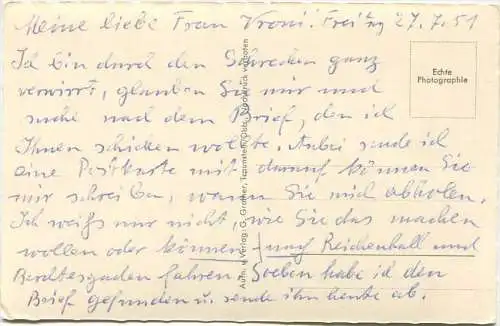 Meine liebe Frau Vroni! Freitag 27.7.51
Ich bin durch den Schrecken ganz
verwirrt, glauben Sie mir und
suche nach dem Brief, den ich
Ihnen schicken wollte. Anbei sende ich
eine Postkarte mit darauf können Sie
mir schreiben, wann Sie mich abholen.
Ich weiß nur nicht, wie Sie das machen
wollen oder können nach Reichenhall und
Berchtesgaden fahren. Soeben habe ich den
Brief gefunden u. sende ihn heute ab.
Echte
Photographie
Aufn. u. Verlag: G. Grather, Traunstein, Obb. Nachdruck verboten